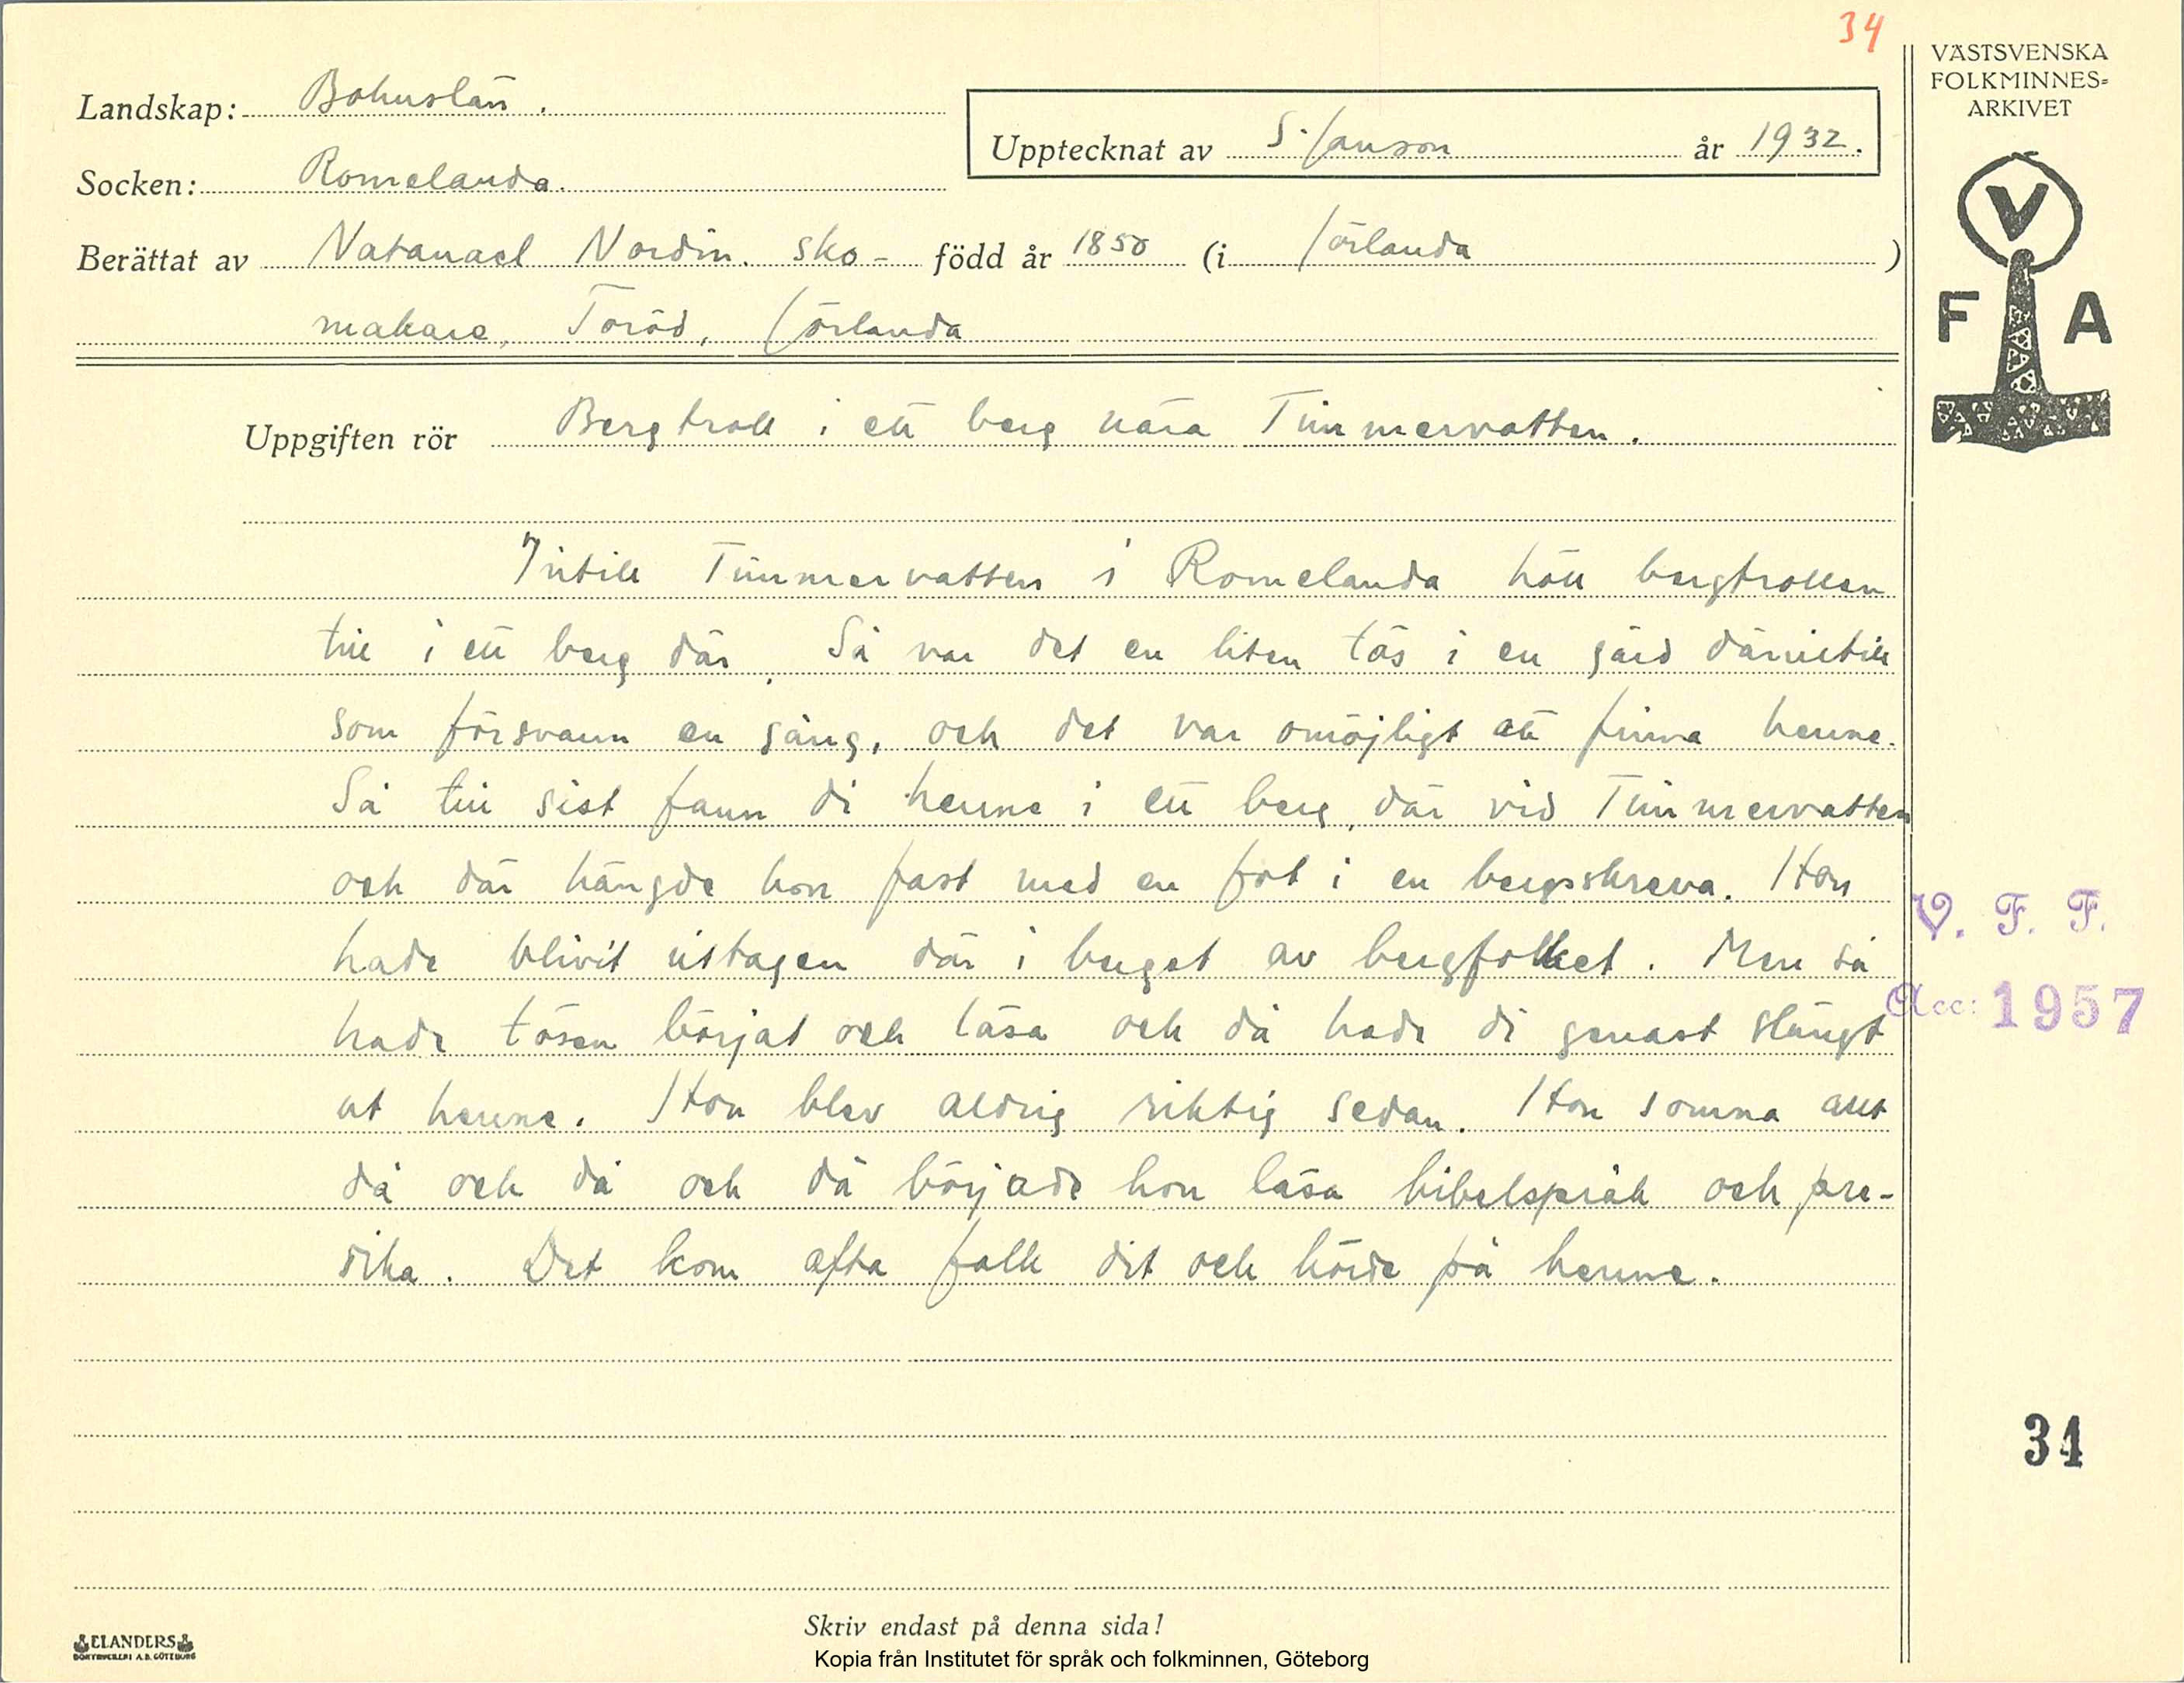 34
VÄSTSVENSKA
FOLKMINNES=
ARKIVET
Landskap: Bohuslän.
Upptecknat av S. Janson år 1932.
Socken: Romelanda.
Berättat av Natanael Nordin. sko- född år 1850 (i Jörlanda)
makare, Toröd, Jörlanda
V
F A
Uppgiften rör Bergtroll i ett berg nära Timmervatten.
Intill Timmervatten i Romelanda höll bergtrollen
till i ett berg där. Så var det en liten tös i en gård därintill
som försvann en gång, och det var omöjligt att finna henne.
Så till sist fann di henne i ett berg där vid Timmervatten
och där hängde hon fast med en fot i en bergsskreva. Hon
hade blivit intagen där i berget av bergfolket. Men så
hade tösen börjat och läsa och då hade di genast slängt
ut henne. Hon blev aldrig riktig sedan. Hon somna allt
då och då och då började hon läsa bibelspråk och pre-
dika. Det kom ofta folk dit och hörde på henne.
V. F. F.
Acc: 1957
34
Skriv endast på denna sida!
ELANDERS
BOKTRYCKERI A.B. GÖTEBORG
Kopia från Institutet för språk och folkminnen, Göteborg